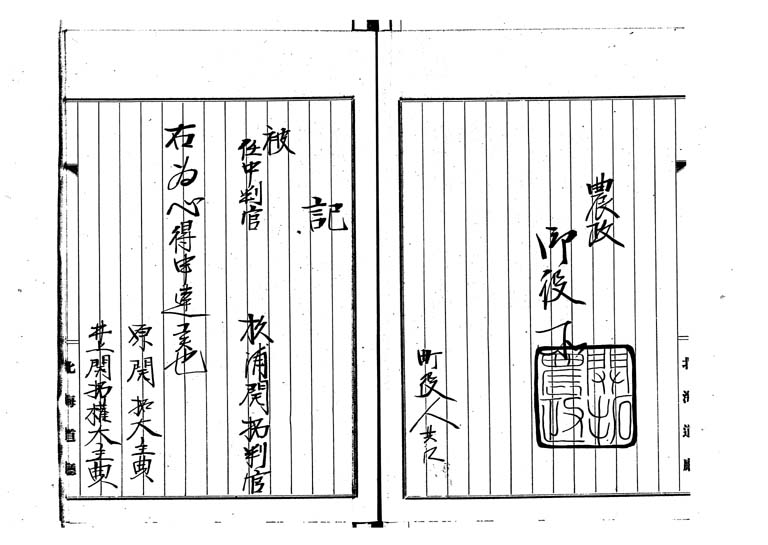 農政
御役所
町役人共へ
開拓農政
北海道廳
記
被
任中判官
杉浦開拓判官
右為心得申達候也
原開拓大主典
井上開拓權大主典
北海道廳